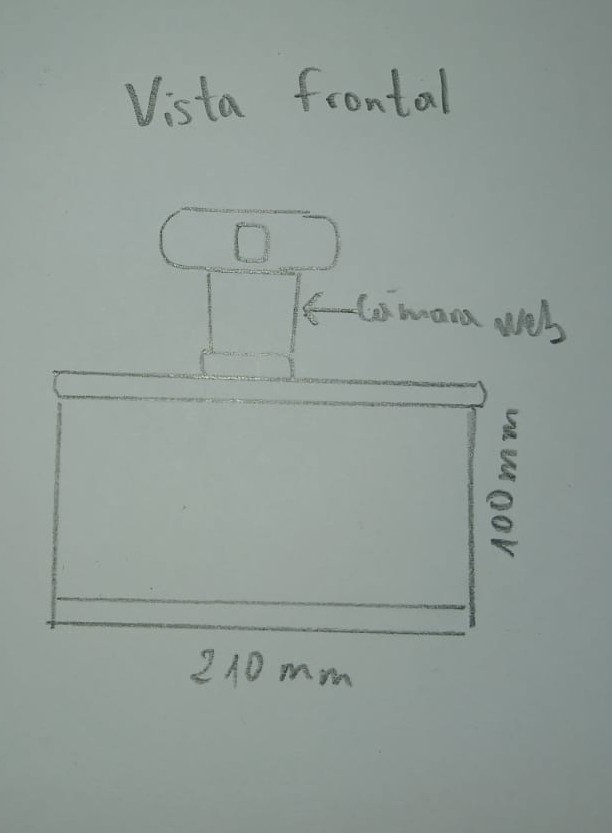 Vista frontal
Cámara web
100mm
210 mm